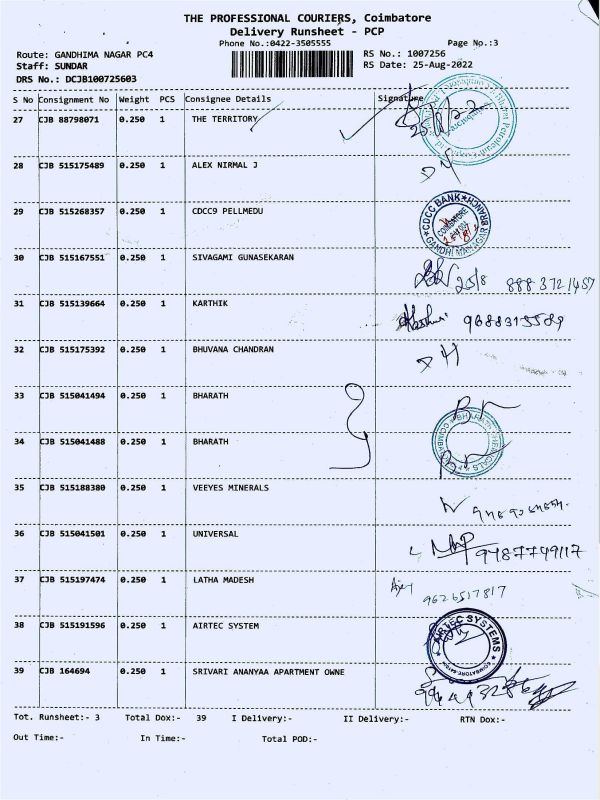 THE PROFESSIONAL COURIERS, Coimbatore
Delivery Runsheet - PCP
Phone No.:0422-3505555 Page No.:3
Route: GANDHIMA NAGAR PC4 RS No.: 1007256
Staff: SUNDAR RS Date: 25-Aug-2022
DRS No.: DCJB100725603
S No Consignment No Weight PCS Consignee Details Signature
27 CJB 88798071 0.250 1 THE TERRITORY
28 CJB 515175489 0.250 1 ALEX NIRMAL J
29 CJB 515268357 0.250 1 CDCC9 PELLMEDU CDCC BANK COIMBATORE GANDHI MANAGAR BRANCH
30 CJB 515167551 0.250 1 SIVAGAMI GUNASEKARAN 25/8 888 3721457
31 CJB 515139664 0.250 1 KARTHIK 9688313589
32 CJB 515175392 0.250 1 BHUVANA CHANDRAN
33 CJB 515041494 0.250 1 BHARATH
34 CJB 515041488 0.250 1 BHARATH
35 CJB 515188380 0.250 1 VEEYES MINERALS
36 CJB 515041501 0.250 1 UNIVERSAL 9487749117
37 CJB 515197474 0.250 1 LATHA MADESH Ajay 9626517817
38 CJB 515191596 0.250 1 AIRTEC SYSTEM AIRTEC SYSTEMS
39 CJB 164694 0.250 1 SRIVARI ANANYAA APARTMENT OWNE
Tot. Runsheet:- 3 Total Dox:- 39 I Delivery:- II Delivery:- RTN Dox:-
Out Time:- In Time:- Total POD:-